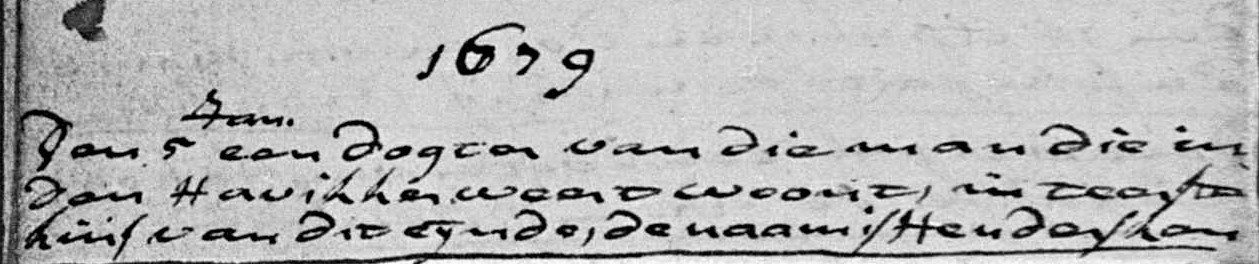 1679
Jan.
Den 5 een dogter van die man die in
den Havikkerweert woont, in t eerste
huis van dit eynde, de naam is Hendersken